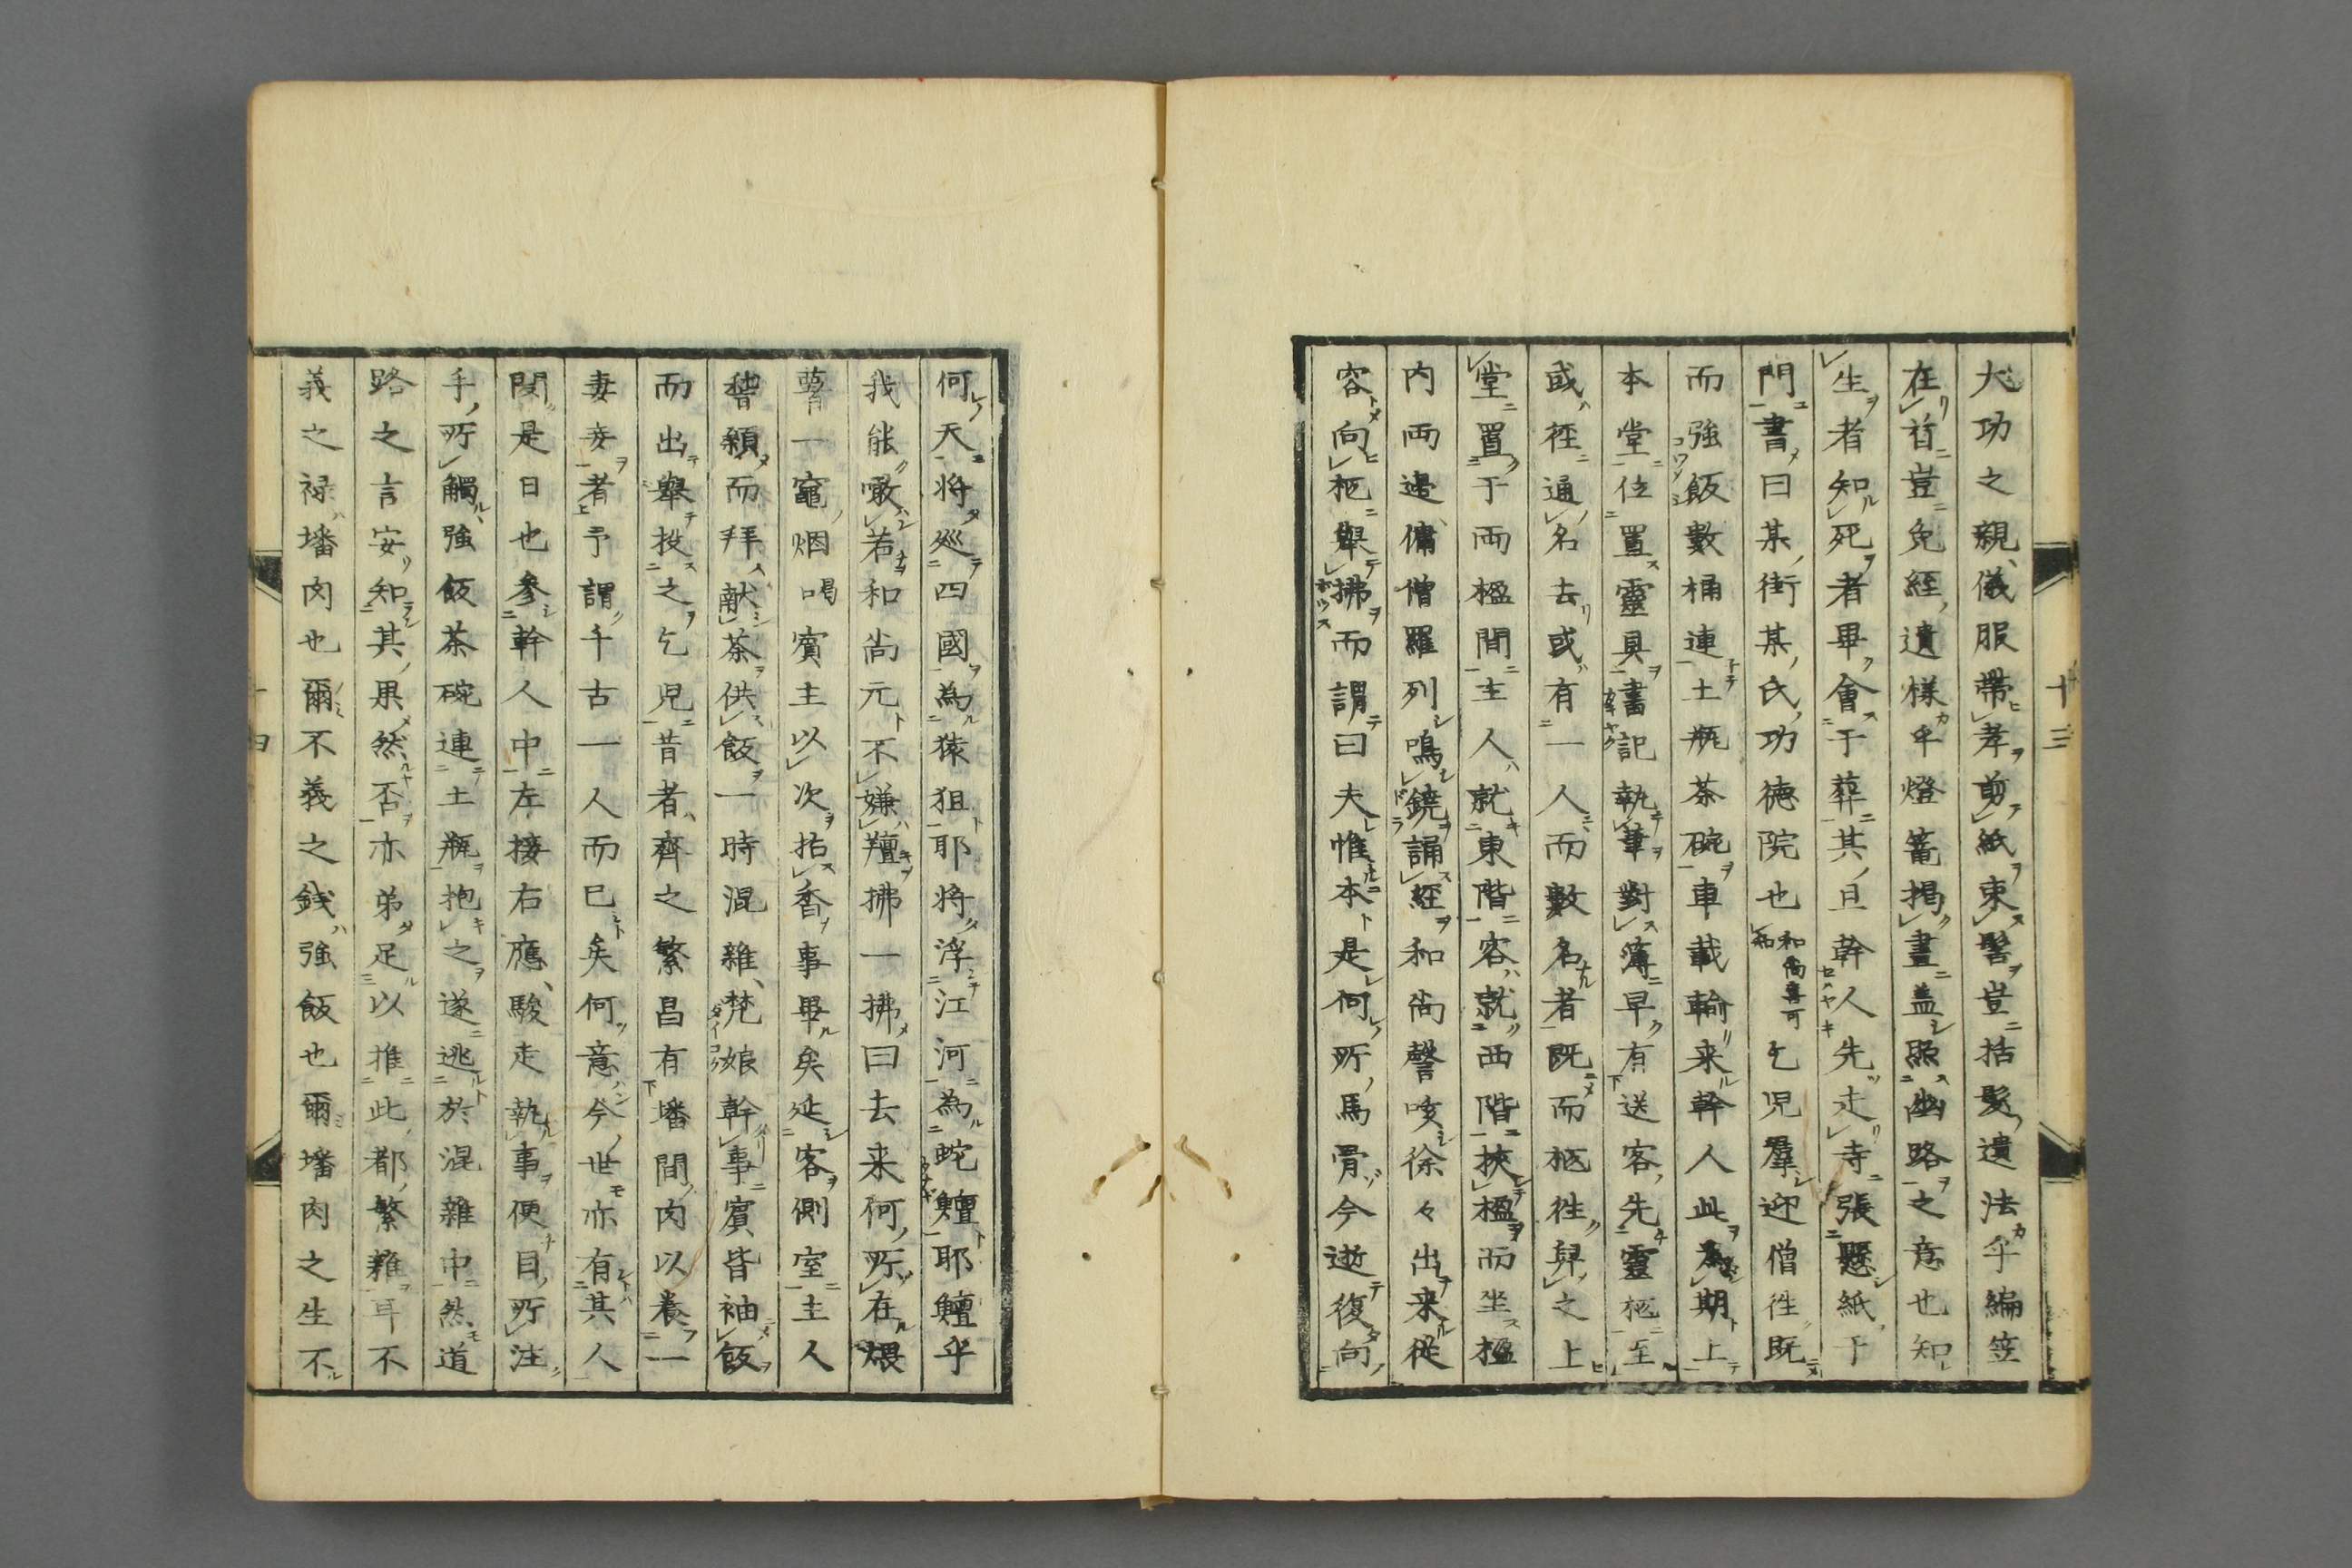 十三
大功之親儀服帶孝剪紙束髻豈括髮遺法乎編笠
在首豈免絰遺樣乎燈篭揭晝蓋照幽路之意也知
生者知死者畢會于葬其且幹人先走寺張懸紙于
門書曰某街某氏功德院也和尚喜可知乞児羣迎僧徃既
而強飯數桶連土瓶茶碗車載輪来幹人此為期上
本堂位置靈具書記執筆對簿早有送客先靈柩至
或徑通名去或有一人而數名者既而柩徃舁之上
堂置于兩楹間主人就東階客就西階挾楹而坐楹
内両邊傭僧羅列鳴鐃誦經和尚謦咳徐々出来從
容向柩舉拂而謂曰夫惟本是何所馬骨今逝復向
何天將巡四國為猿狙耶將浮江河為蛇鱣耶鱣乎
我能噉若和尚元不嫌羶拂一拂曰去来何所在煨
一竈烟喝賓主以次拈香事畢矣延客側室主人
稽顙而拜献茶供飯一時混雜梵娘幹事賓皆袖飯
而出舉投之乞児昔者齊之繁昌有墦間肉以養一
妻妾者予謂千古一人而已矣何意今世亦有其人
閔是日也參幹人中左接右應駿走執事便目所注
手所觸強飯茶碗連土瓶抱之遂逃於混雜中然道
路之言安知其果然否亦弟足以推此都繁雜耳不
義之禄墦肉也爾不義之錢強飯也爾墦肉之生不
十四